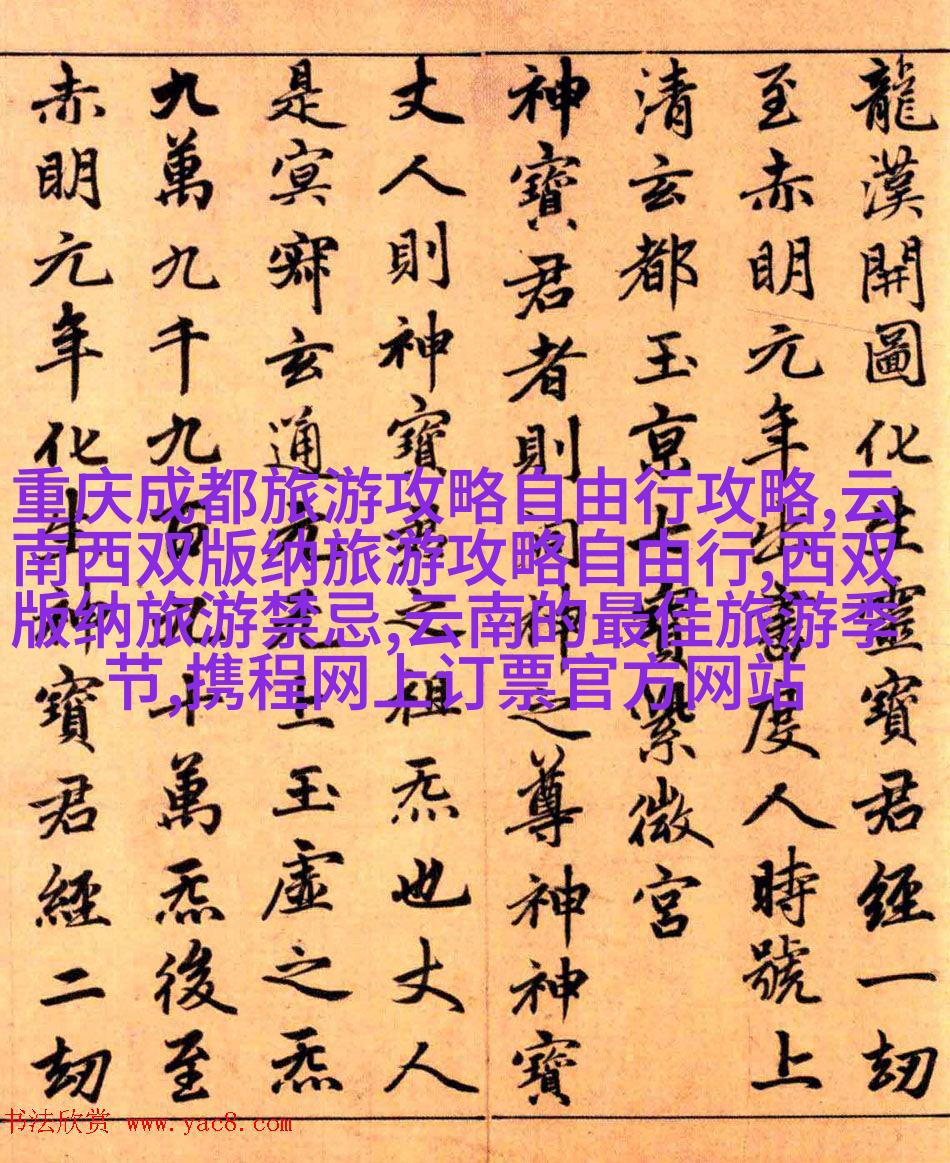 龍漢開圖化生靈寶君經一劫
至赤明元年出書度人時號上
清玄都玉京七寶紫微宮
神寶君者則洞神之尊神神寶
丈人則神寶君之祖炁也丈人
是冥寂玄通元无上玉虛之炁
九萬九千九百九十萬炁後至
赤明元年化生神寶君經二劫
重庆成都旅游攻略自由行攻略,云
南西双版纳旅游攻略自由行,西双
版纳旅游禁忌,云南的最佳旅游季
节,携程网上订票官方网站
书法欣赏 www.yac8.com